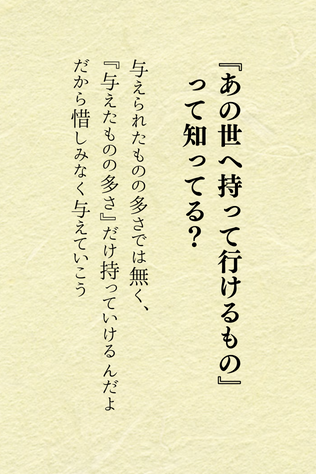 『あの世へ持って行けるもの』
って知ってる？
与えられたものの多さでは無く、
『与えたものの多さ』だけ持っていける んだよ
だから惜しみなく与えていこう